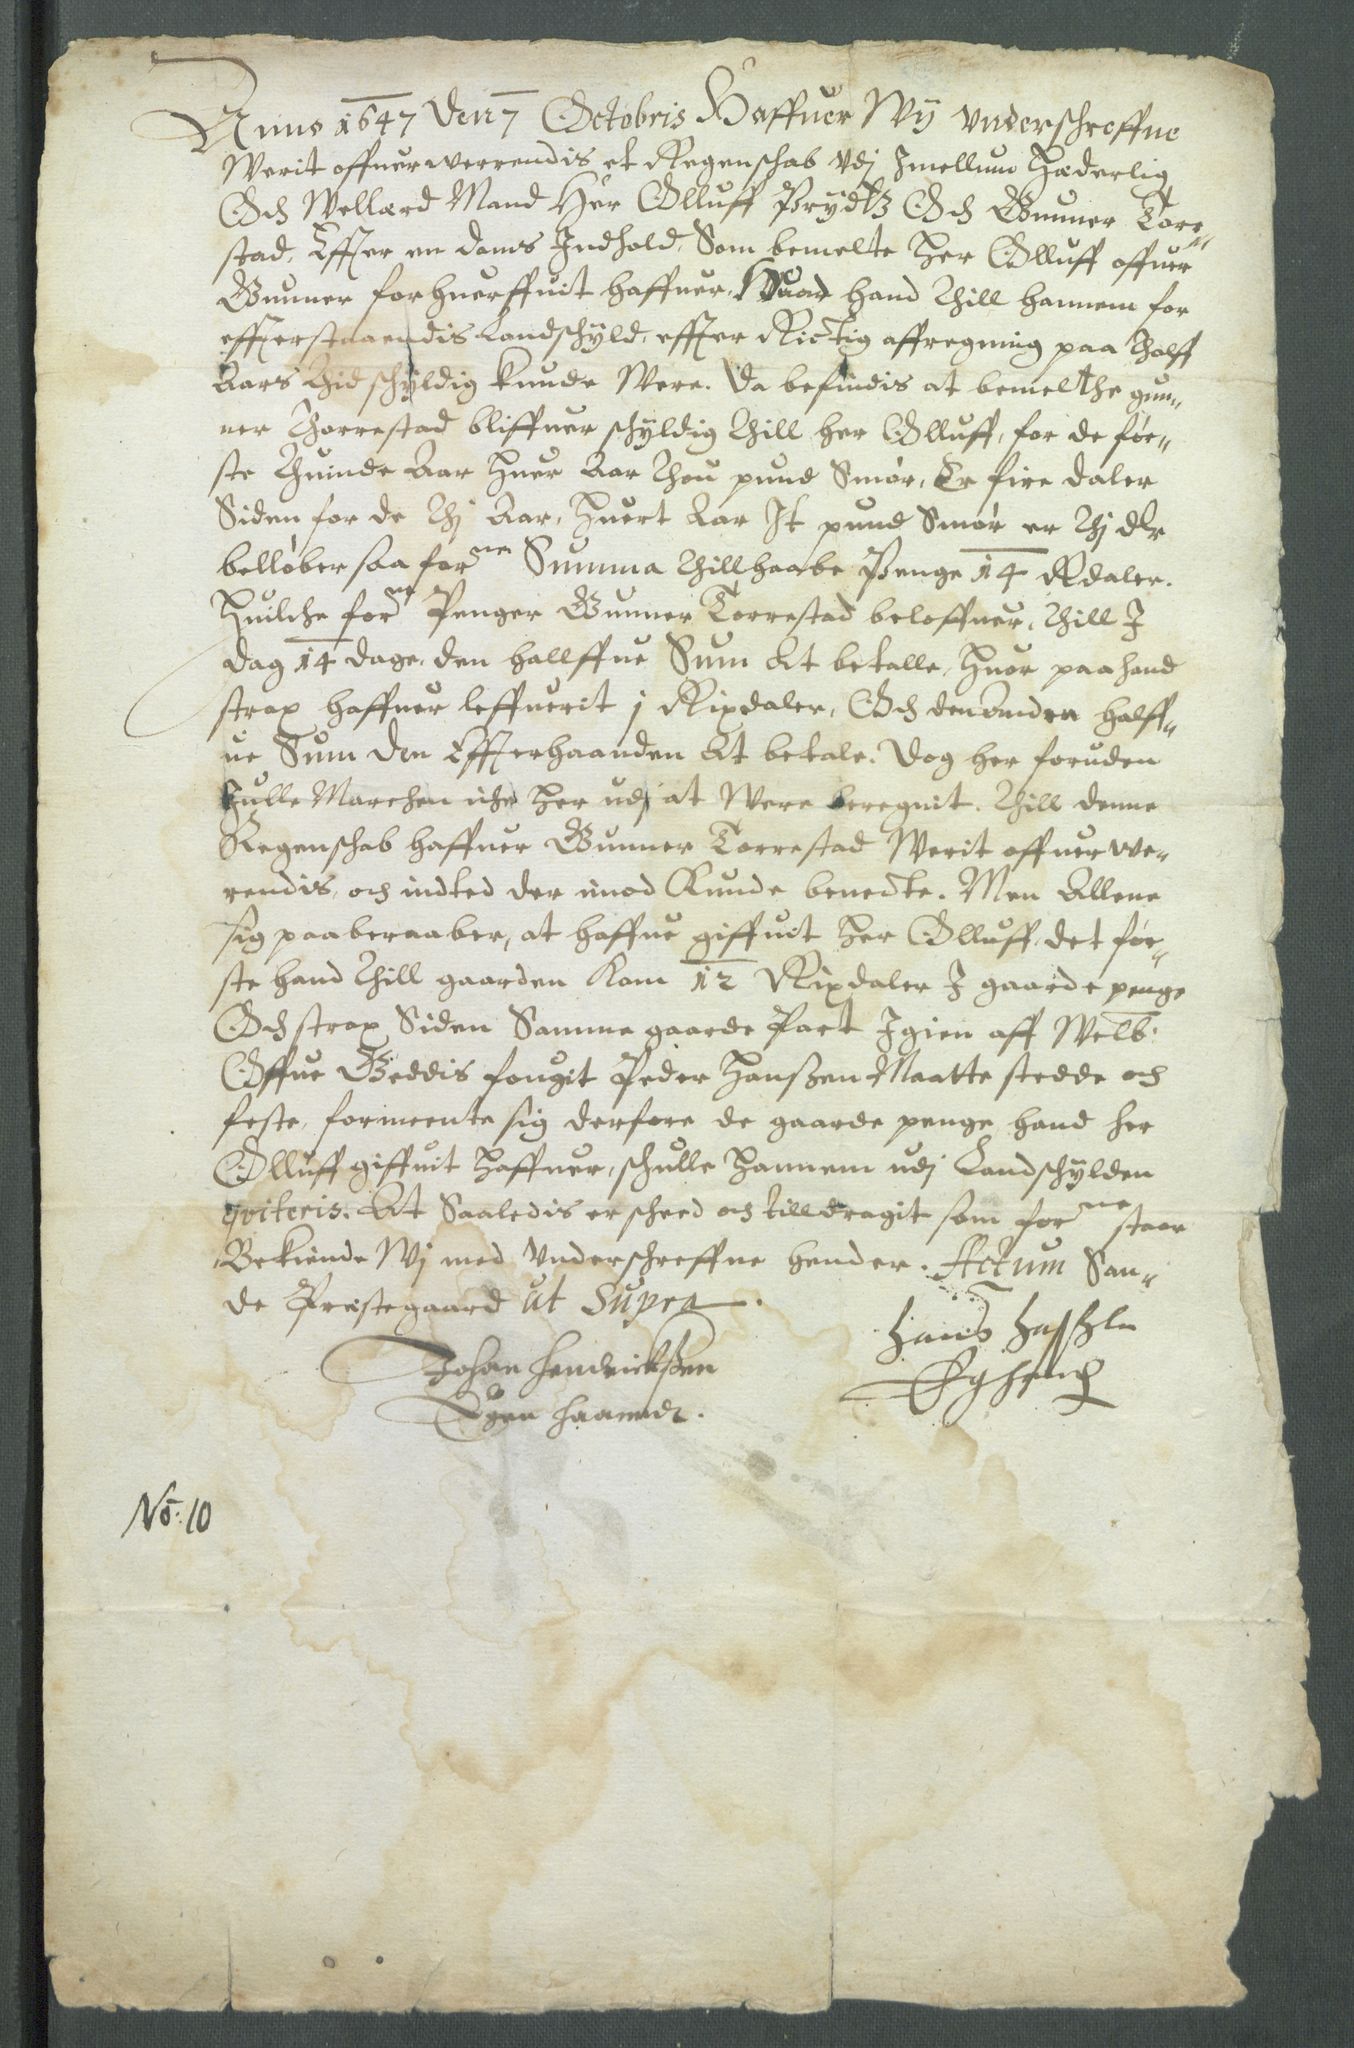 Anno 1647 den 7 Octobris Haffuer Wij vnderschreffne
Werit offuerwerrendis et Regenschab vdj Jmellum Hæderlig
Och Wellærd Mand Her Olluff Prydtz Och Gunner Torre„
stad, Effter en doms Jndhold, Som bemelte Her Olluff offuer
Gunner forhuerffuit haffuer, Huad hand Thill hannem for
effterstaaendis Landschyld, effter Rictig affregning paa Tholff
Aars Thid schyldig kunde Were. Da befindis at bemelthe gun„
ner Thorrestad bliffuer schyldig Thill her Olluff, for de før„
ste Thuinde Aar Huer Aar Thou pund Smør, Er fire daler
Siden for de Thj Aar, Huert Aar It pund Smør er Thj dlr
belløber saa forne Summa Thillhaabe Penge 14 Rdaler.
Huilche forne Penger Gunner Torrestad beloffuer, Thill J
dag 14 dage, den hallffue Sum At betalle, Huor paa hand
strax haffuer leffuerit j Rixdaler, Och den Anden halff„
ue Sum den Effterhaanden At betale. Dog her foruden
Julle Marchen iche Her udj at Were beregnit. Thill denne
Regenschab haffuer Gunner Torrestad Werit offuerwe„
rendis, och indted der imod Kunde benecte. Men Allene
sig paaberaaber, at haffue giffuit Her Olluff det før„
ste hand Thill gaarden Kom 12 Rixdaler J gaarde penge
Och strax Siden Samme gaarde Part Jgien aff Welb:
Offue Geddis fougit Peder Hanßen Maatte stedde och
feste, formeente sig derfore de gaarde penge hand her
Olluff giffuit Haffuer, schulle Hannem udj Landschylden
qviteris. At Saaledis er scheed och tilldragit som forne staar
Bekiende Wj med Vnderschreffne hender. Actum San„
de Prestegaard ut Supra.
Johan Hendrichßen
Egen Haanndt.
Hans
Eghand
No: 10